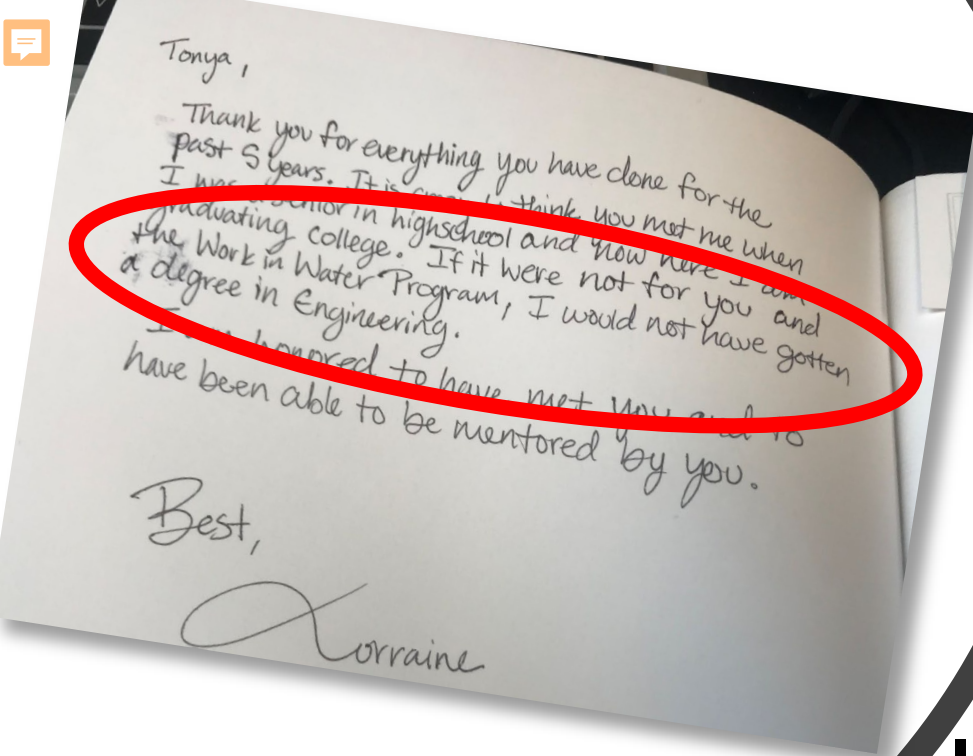 Tonya,
Thank you for everything you have done for the
past 5 years. It is to think you met me when
I was a senior in highschool and now here I am
graduating college. If it were not for you and
the Work in Water Program, I would not have gotten
a degree in Engineering.
I honored to have met you and to
have been able to be mentored by you.
Best,
Lorraine